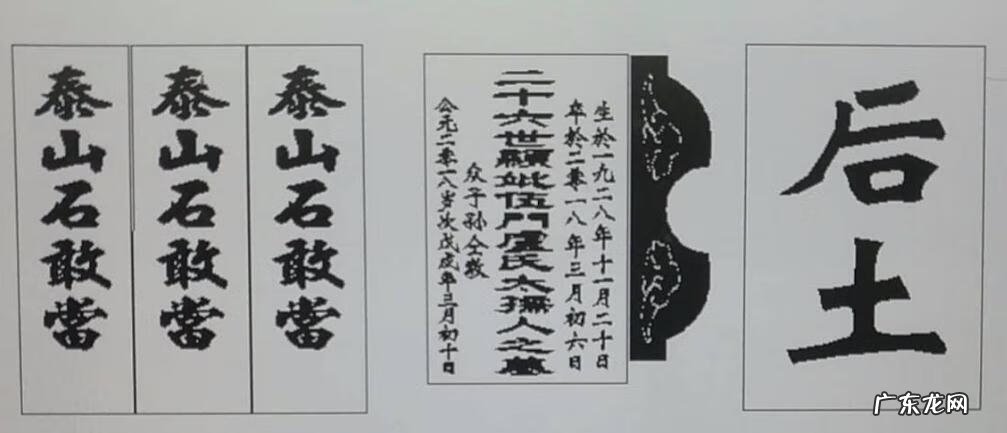 泰山石敢當
泰山石敢當
泰山石敢當
生於一九二八年十一月二十日
卒於二零一八年三月初六日
二十六世顯妣伍門盧氏太孺人之墓
众子孙仝敬
公元二零一八岁次戊戌年三月初十日
后土
广东龙网